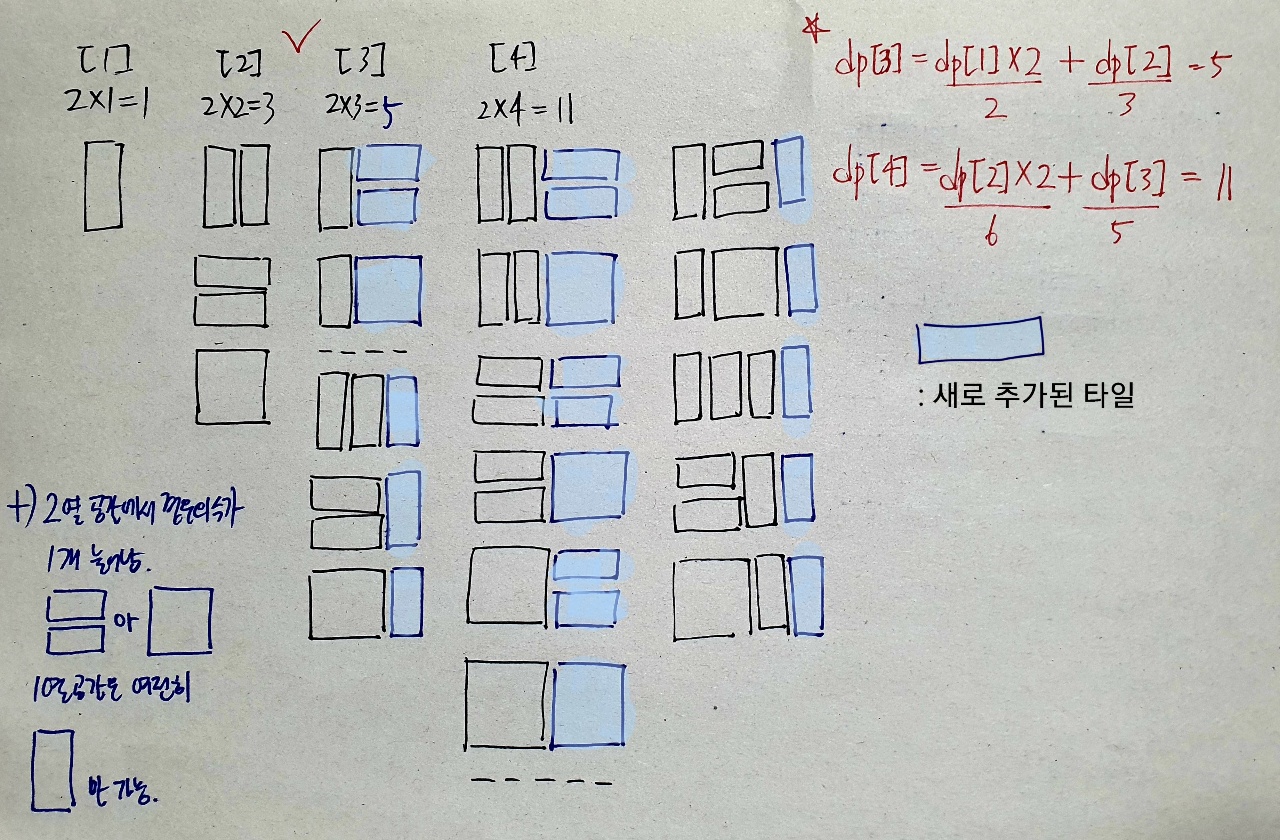 [1]
2X1=1
[2]
2X2=3
[3]
2X3=5
[4]
2X4=11
dp[3]=dp[1]X2+dp[2]=5
2
3
dp[4]=dp[2]X2+dp[3]=11
6
5
: 새로 추가된 타일
+) 2열 공간에서 경우의 수가
1개 늘어남.
와
1열 공간은 여전히
만 가능.